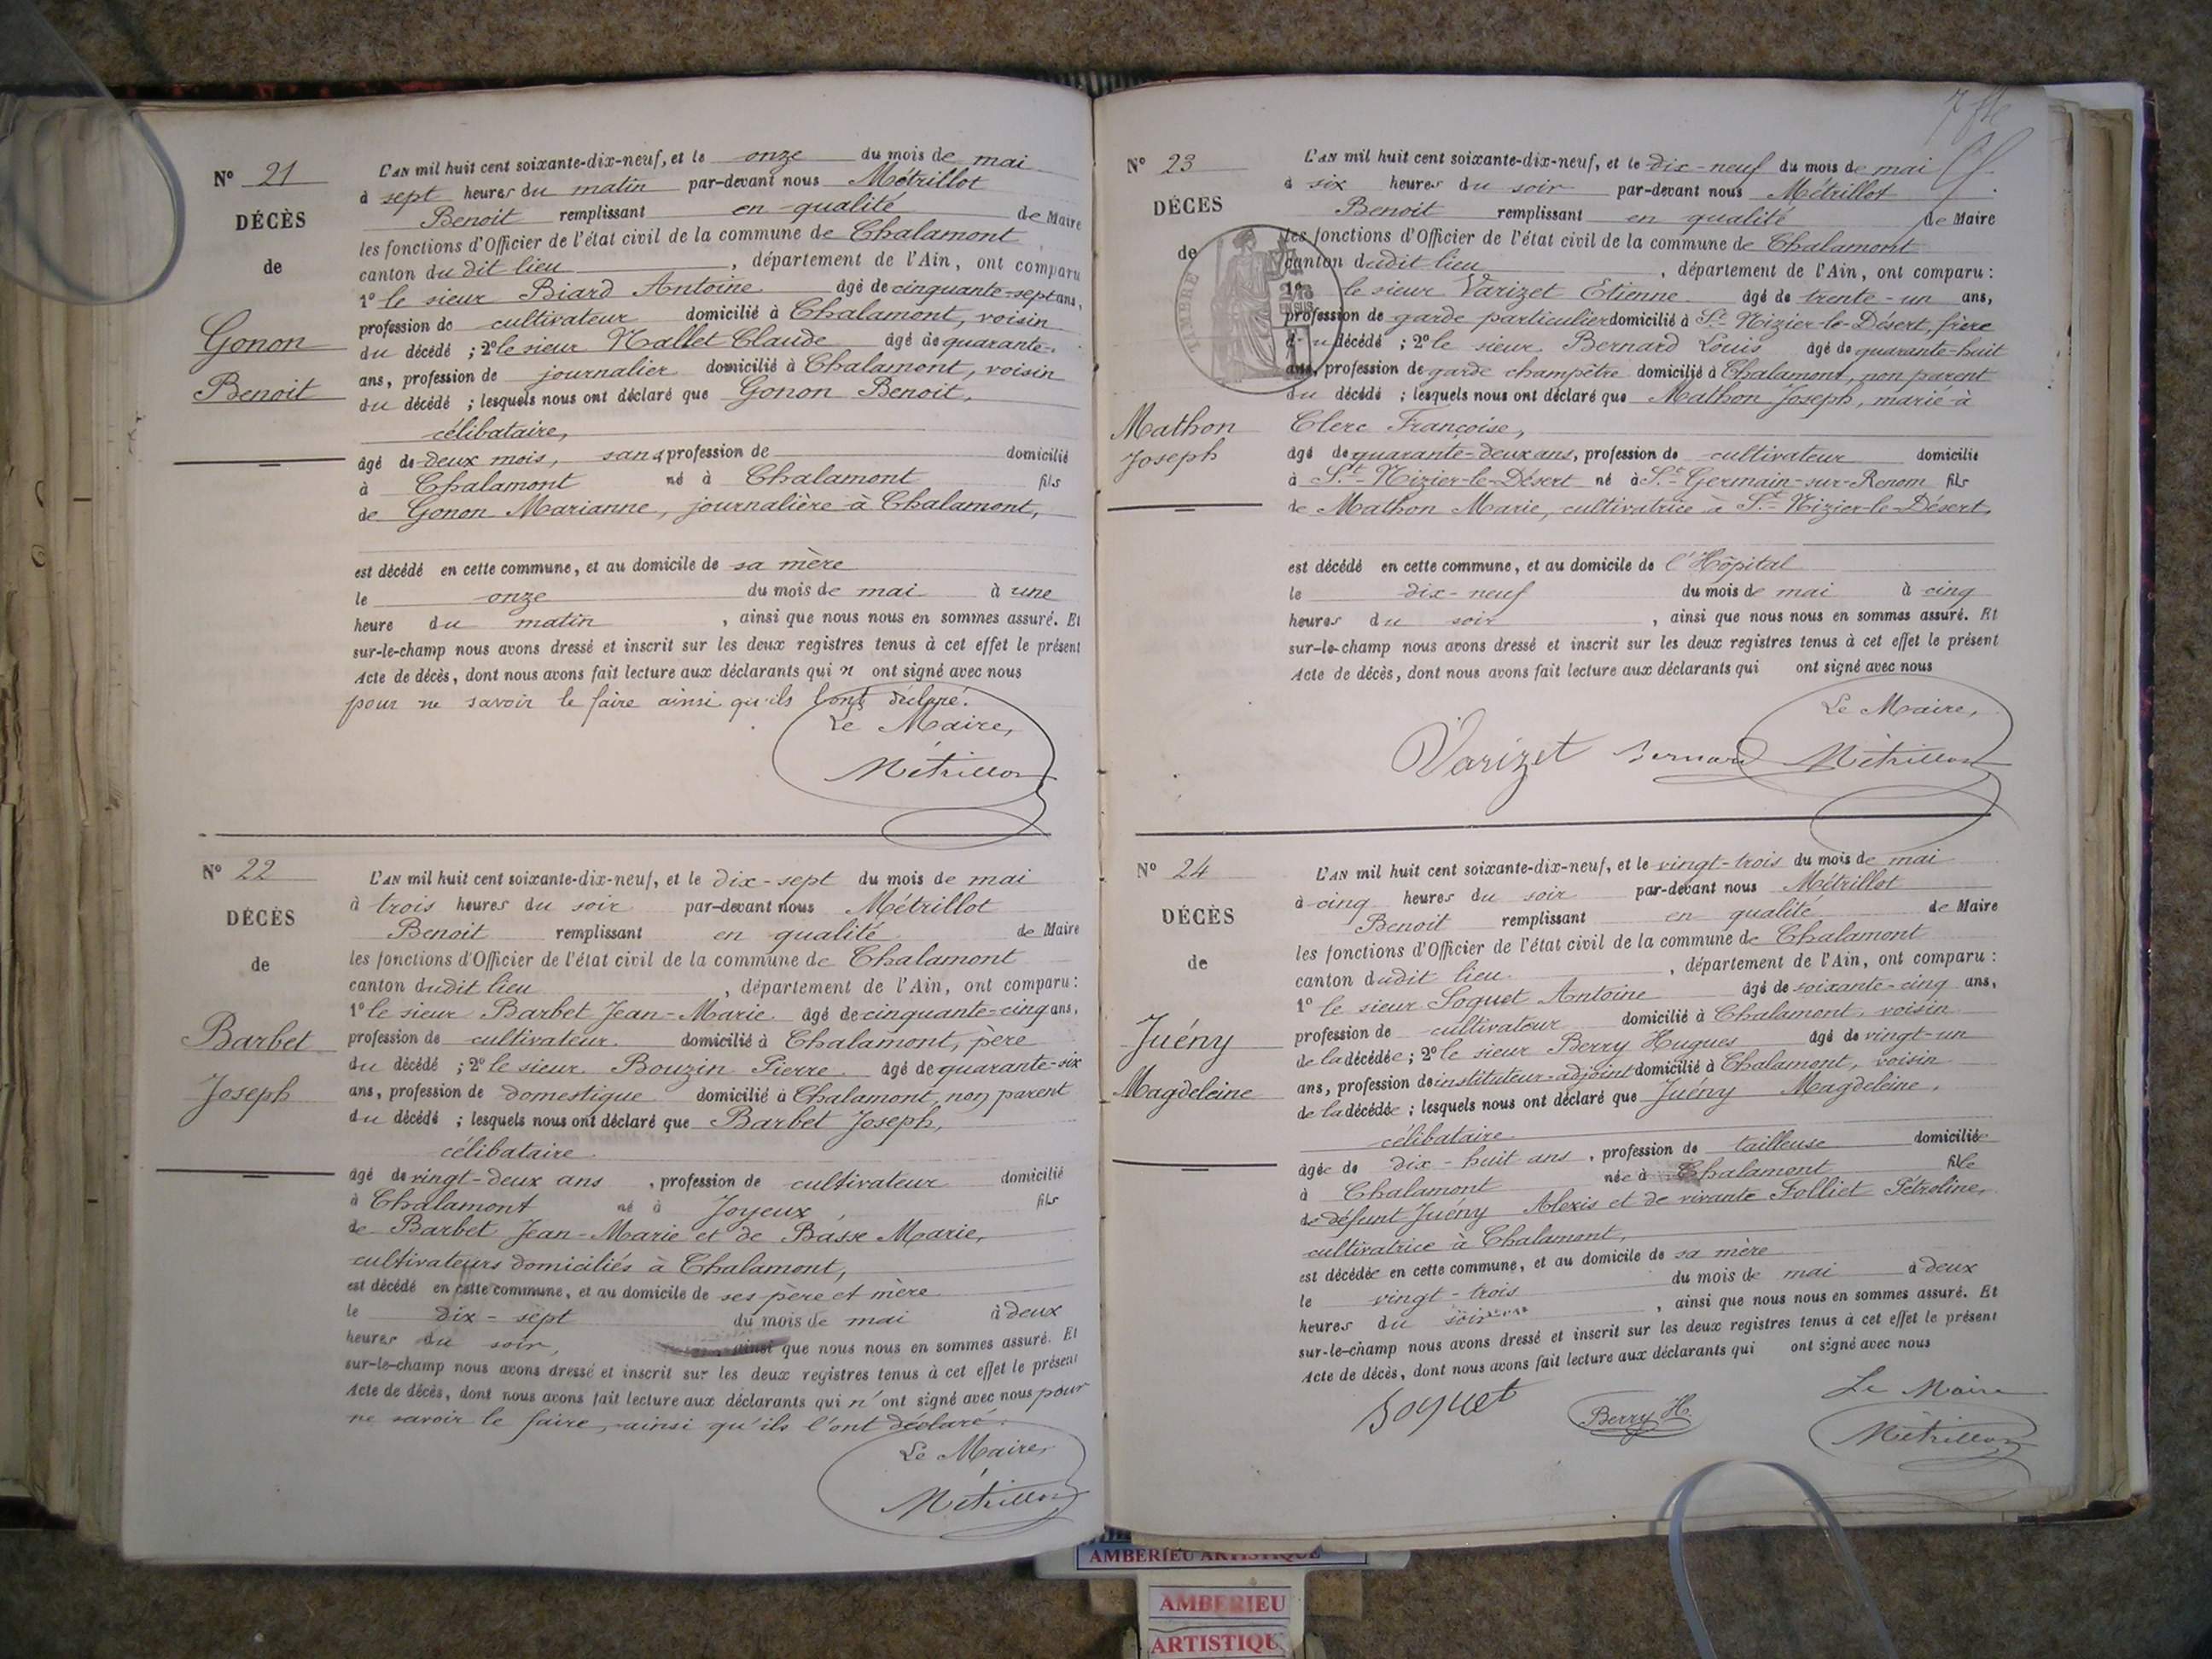 N° 21
DÉCÈS
de
Gonon
Benoit
L'AN mil huit cent soixante-dix-neuf, et le onze du mois de mai
à sept heures du matin par-devant nous Métrillot
Benoit remplissant en qualité de Maire
les fonctions d'Officier de l'état civil de la commune de Chalamont
canton du dit lieu, département de l'Ain, ont comparu
1° le sieur Biard Antoine âgé de cinquante-sept ans,
profession de cultivateur domicilié à Chalamont, voisin
du décédé ; 2° le sieur Mallet Claude âgé de quarante-
ans, profession de journalier domicilié à Chalamont, voisin
du décédé ; lesquels nous ont déclaré que Gonon Benoit,
célibataire,
âgé de deux mois, sans profession de domicilié
à Chalamont né à Chalamont fils
de Gonon Marianne, journalière à Chalamont,
est décédé en cette commune, et au domicile de sa mère
le onze du mois de mai à une
heure du matin, ainsi que nous nous en sommes assuré. Et
sur-le-champ nous avons dressé et inscrit sur les deux registres tenus à cet effet le présent
Acte de décès, dont nous avons fait lecture aux déclarants qui n ont signé avec nous
pour ne savoir le faire ainsi qu'ils l'ont déclaré.
Le Maire,
Métrillot
N° 22
DÉCÈS
de
Barbet
Joseph
L'AN mil huit cent soixante-dix-neuf, et le dix-sept du mois de mai
à trois heures du soir par-devant nous Métrillot
Benoit remplissant en qualité de Maire
les fonctions d'Officier de l'état civil de la commune de Chalamont
canton dudit lieu, département de l'Ain, ont comparu :
1° le sieur Barbet Jean-Marie âgé de cinquante-cinq ans,
profession de cultivateur domicilié à Chalamont, père
du décédé ; 2° le sieur Bouzin Pierre âgé de quarante-six
ans, profession de domestique domicilié à Chalamont, non parent
du décédé ; lesquels nous ont déclaré que Barbet Joseph,
célibataire
âgé de vingt-deux ans, profession de cultivateur domicilié
à Chalamont né à Joyeux, fils
de Barbet Jean-Marie et de Basse Marie,
cultivateurs domiciliés à Chalamont,
est décédé en cette commune, et au domicile de ses père et mère
le dix-sept du mois de mai à deux
heures du soir, ainsi que nous nous en sommes assuré. Et
sur-le-champ nous avons dressé et inscrit sur les deux registres tenus à cet effet le présent
Acte de décès, dont nous avons fait lecture aux déclarants qui n'ont signé avec nous pour
ne savoir le faire, ainsi qu'ils l'ont déclaré.
Le Maire,
Métrillot
7 fle
N° 23
DÉCÈS
de
TIMBRE
2/10 EN SUS
Mathon
Joseph
L'AN mil huit cent soixante-dix-neuf, et le dix-neuf du mois de mai
à six heures du soir par-devant nous Métrillot
Benoit remplissant en qualité de Maire
les fonctions d'Officier de l'état civil de la commune de Chalamont
canton dudit lieu, département de l'Ain, ont comparu :
1° le sieur Varizet Etienne âgé de trente-un ans,
profession de garde particulier domicilié à St-Nizier-le-Désert, frère
du décédé ; 2° le sieur Bernard Louis âgé de quarante-huit
ans, profession de garde champêtre domicilié à Chalamont, non parent
du décédé ; lesquels nous ont déclaré que Mathon Joseph, marié à
Clerc Françoise,
âgé de quarante-deux ans, profession de cultivateur domicilié
à St-Nizier-le-Désert né à St-Germain-sur-Renom fils
de Mathon Marie, cultivatrice à St-Nizier-le-Désert,
est décédé en cette commune, et au domicile de l'Hôpital
le dix-neuf du mois de mai à cinq
heures du soir, ainsi que nous nous en sommes assuré. Et
sur-le-champ nous avons dressé et inscrit sur les deux registres tenus à cet effet le présent
Acte de décès, dont nous avons fait lecture aux déclarants qui ont signé avec nous
Le Maire,
Varizet Bernard Métrillot
N° 24
DÉCÈS
de
Juény
Magdeleine
L'AN mil huit cent soixante-dix-neuf, et le vingt-trois du mois de mai
à cinq heures du soir par-devant nous Métrillot
Benoit remplissant en qualité de Maire
les fonctions d'Officier de l'état civil de la commune de Chalamont
canton dudit lieu, département de l'Ain, ont comparu :
1° le sieur Soquet Antoine âgé de soixante-cinq ans,
profession de cultivateur domicilié à Chalamont, voisin
de la décédée ; 2° le sieur Berry Hugues âgé de vingt-un
ans, profession de instituteur-adjoint domicilié à Chalamont, voisin
de la décédée ; lesquels nous ont déclaré que Juény Magdeleine,
célibataire
âgée de dix-huit ans, profession de tailleuse domiciliée
à Chalamont née à Chalamont fille
de défunt Juény Alexis et de vivante Folliet Pétroline,
cultivatrice à Chalamont,
est décédée en cette commune, et au domicile de sa mère
le vingt-trois du mois de mai à deux
heures du soir, ainsi que nous nous en sommes assuré. Et
sur-le-champ nous avons dressé et inscrit sur les deux registres tenus à cet effet le présent
Acte de décès, dont nous avons fait lecture aux déclarants qui ont signé avec nous
Le Maire
Soquet Berry H. Métrillot
AMBERIEU ARTISTIQUE
AMBERIEU
ARTISTIQU